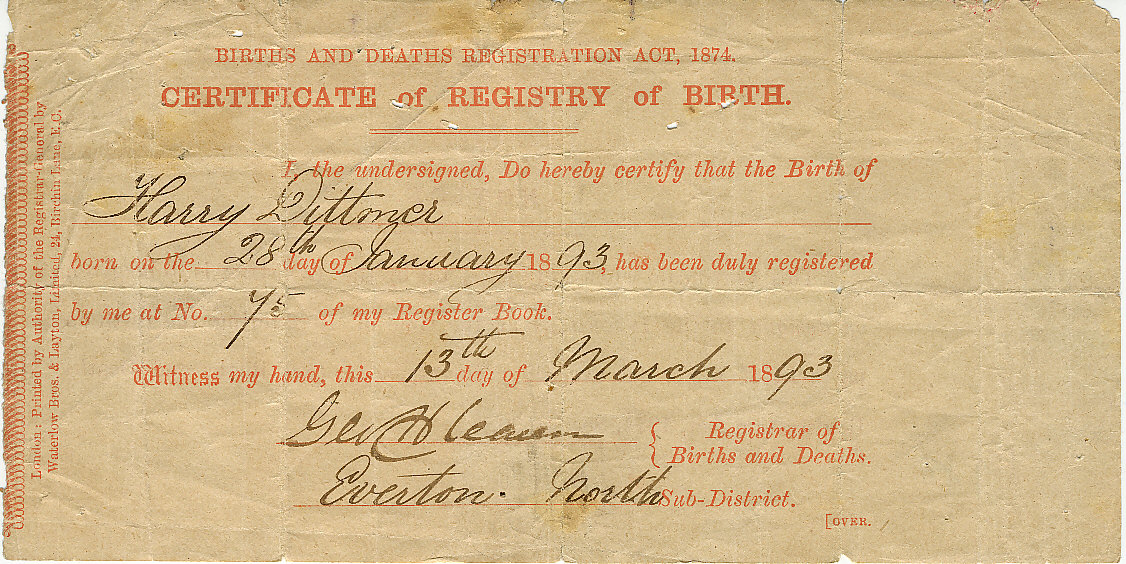 BIRTHS AND DEATHS REGISTRATION ACT, 1874.
CERTIFICATE of REGISTRY of BIRTH.
I, the undersigned, Do hereby certify that the Birth of
Harry Dittmer
born on the 28th day of January 1893, has been duly registered
by me at No. 75 of my Register Book.
Witness my hand, this 13th day of March 1893
Geo H
Registrar of
Births and Deaths.
Everton North Sub-District.
[OVER.
London: Printed by Authority of the Registrar-General by
Waterlow Bros. & Layton, Limited, 24, Birchin Lane, E.C.